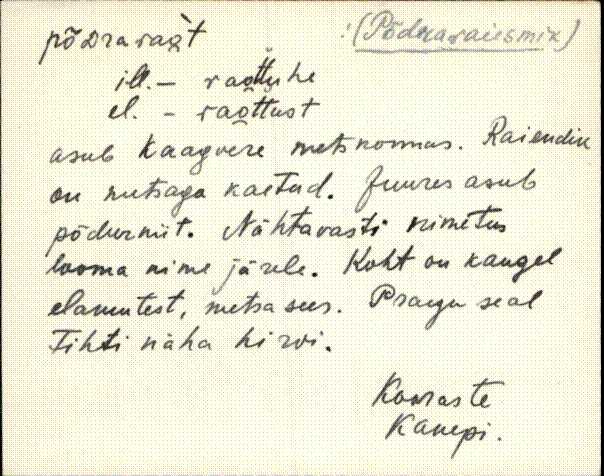 põdraraǫ̀t !(Põdraraiesmik)
ill. – raǫttuhe
el. – raǫttust
asub Kaagvere metskonnas. Raiendik
on metsaga kaetud. Juures asub
põdurniit. Nähtavasti nimetus
looma nime järele. Koht on kaugel
elamutest, metsa sees. Praegu seal
Tihti näha hirvi.
Kooraste
Kanepi.